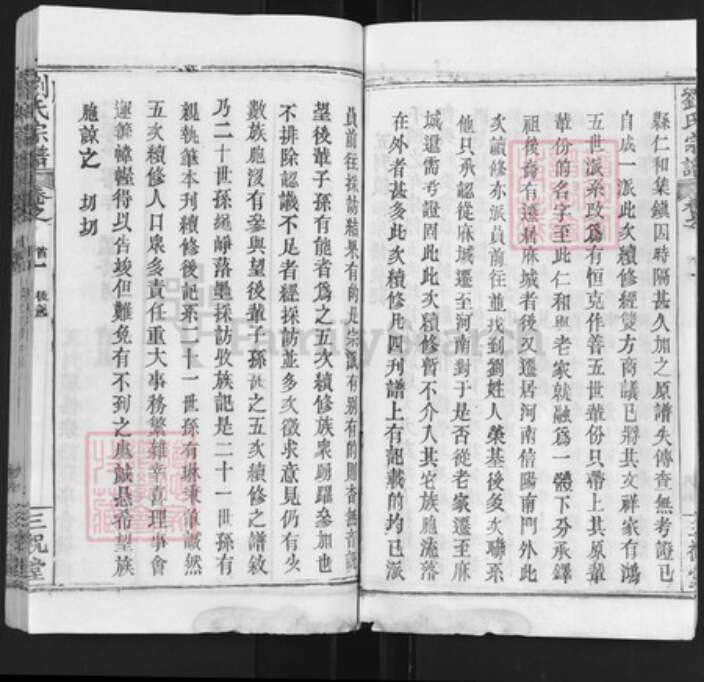 劉氏宗譜
縣仁和集鎮因時隔甚久加之原譜失傳查無考證已
自成一派此次續修經雙方商議已將其文祥家有鴻
五世派系改為有恒克作善五世輩份只帶上其原輩
輩份的名字至此仁和與老家就融為一體下分承鐸
祖後裔有遷居麻城者後又遷居河南信陽南門外此
次續修亦派員前往並找到劉姓人榮基後多次聯系
他只承認從麻城遷至河南對于是否從老家遷至麻
城還需考證固此此次續修暫不介入其它族胞流落
在外者甚多此次續修凡四刊譜上有記載的均已派
三祝堂
員前往採訪結果有的是宗派有别有的則查無音訊
望後輩子孫有能者為之五次續修族衆踴躍參加也
不排除認識不足者經採訪並多次徵求意見仍有少
數族胞没有參與望後輩子孫 之五次續修之譜敘
乃二十世孫繩崢落墨採訪攷族記是二十一世孫有
親執筆本刊續修後記系二十一世孫有琳秉 慨然
五次續修人口衆多責任重大事務繁雜幸喜理事會
運籌幃幄得以告竣但難免有不到之處誠懇希望族
胞諒之 切切
劉氏宗譜
卷之首一
後記
三祝堂
FamilySearch